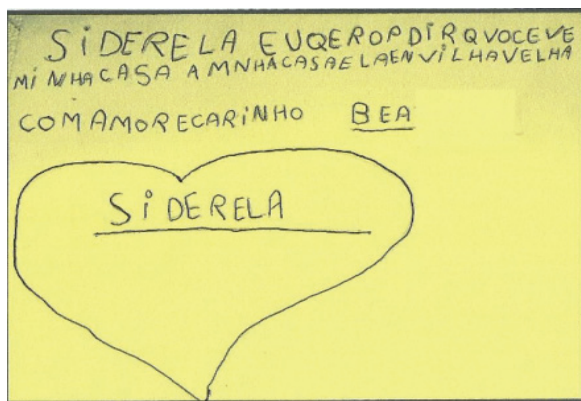 SiDERELA EUQEROPDiRQVOCEVE
MiNHACASA AMNHACASAELAENViLHAVELHA
COMAMORECARiNHO BEA
SiDERELA